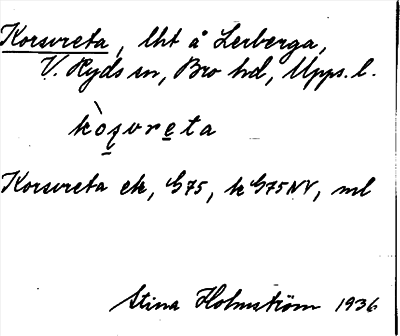 Korsvreta, lht å Lerberga,
V. Ryds sn, Bro hd, Upps. l.
kò̱qvre̱ta
Korsvreta ek, G75, k G75NV, ml
Stina Holmström 1936